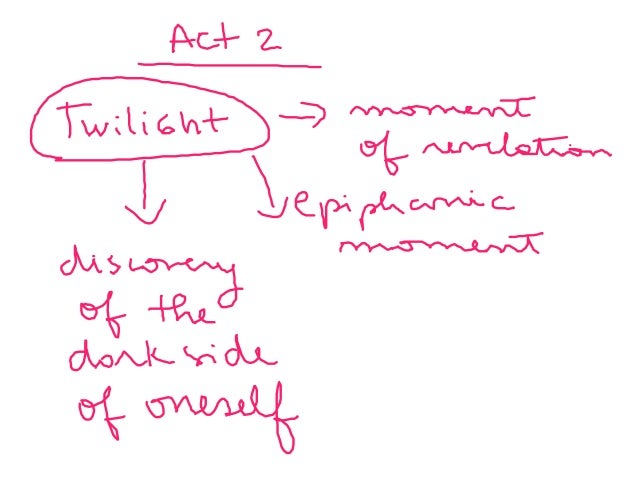 Act 2
Twilight
moment
of revelation
epiphanic
moment
discovery
of the
dark side
of oneself